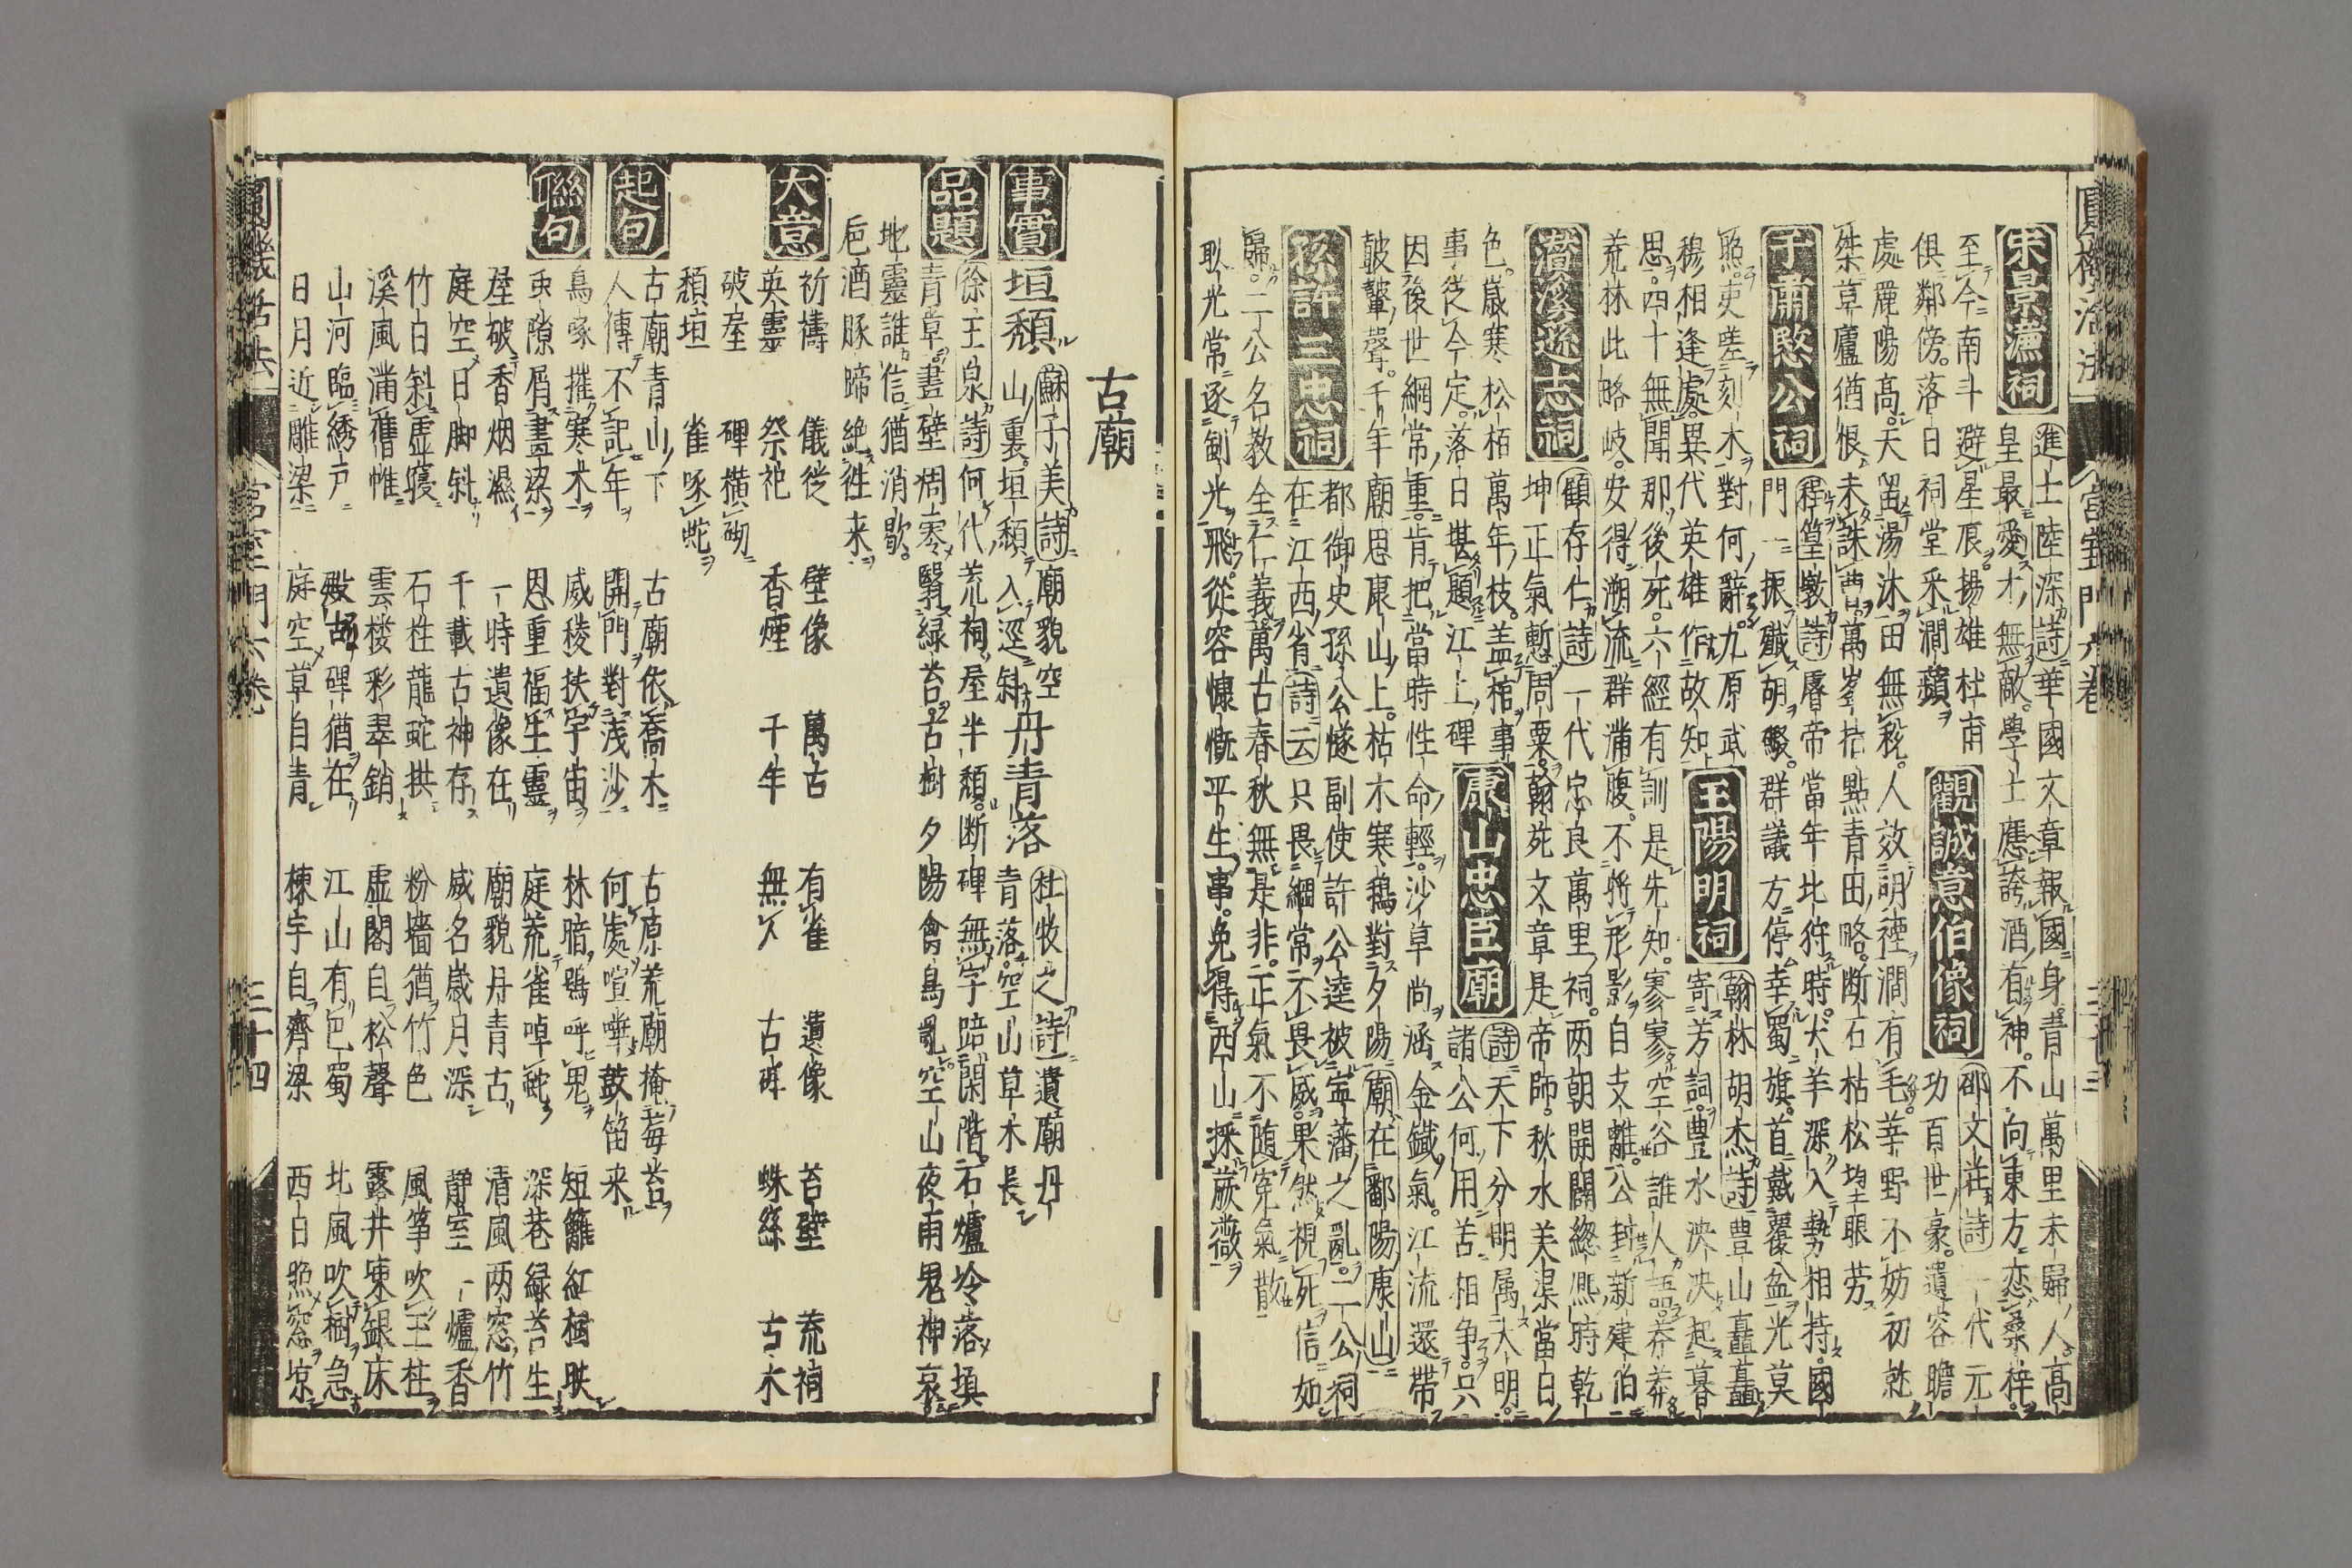 宋景濂祠 進士陸深詩華國文章報國身青山萬里未歸人高
皇最愛才無敵學士應誇酒有神不向東方恋桑梓
至今南斗避星辰揚雄杜甫 觀誠意伯像祠 邵文莊詩一代元
俱鄰傍落日祠堂采澗蘋 功百世豪遺容瞻
處麗陽高天留湯沐田無稅人效明禋澗有毛莘野不妨初就
桀草廬猶恨未誅曹萬峯拮點青田略断石枯松望眼劳
于肅愍公祠 程篁墩詩厚帝當年北狩時犬羊深入勢相持國
門一振殲胡毉群議方停幸蜀旗首戴覆盆光莫
照吏嗟刻木對何辭九原武 王陽明祠 翰林胡杰詩豊山矗矗
穆相逢處異代英雄作故知 寄芳詞豊水泱泱起暮
思四十無聞那後死六經有訓是先知寥寥空谷誰人語莽莽
荒林此略岐安得溯流群滿腹不將形影自支離公封新建伯
濳溪遜志祠 顧存仁詩一代忠良萬里祠两朝開闢緫凞時乾
坤正氣慙周粟翰苑文章是帝師秋水美渠當日
色歲寒松栢萬年枝盖棺事 康山忠臣廟 詩天下分明属大明
事从今定落日堪題江上碑 諸公何用苦相争只
因後世綱常重肯把當時性命輕沙草尚涵金鏃氣江流還帶
皷鼙聲千年廟思康山上枯木寒鴉對夕陽廟在鄱陽康山
孫許三忠祠 都御史孫公燧副使許公逵被寧藩之亂二公祠
在江西省詩云只畏綱常不畏威果然視死信如
歸二公名教全仁義萬古春秋無是非正氣不随寃氣散
耿光常逐劍光飛從容慷慨平生事免得西山採蕨薇
古廟
事實 垣頽 蘇子美詩廟貌空
山裏垣頽入逕斜 丹青落 杜牧之詩遺廟丹
青落空山草木長
品題 徐王泉詩何代荒祠屋半頽断碑無字踣閑階石爐冷落填
青草畫壁凋零翳緑苔古樹夕陽禽鳥亂空山夜雨鬼神哀
地靈誰信猶消歇
巵酒豚蹄絶往来
大意 祈禱 儀従 壁像 萬古 有雀 遺像 苔壁 荒祠
英靈 祭祀 香煙 千年 無人 古碑 蛛絲 古木
破屋 碑橫砌
頽垣 雀啄蛇
起句 古廟青山下 古廟依喬木 古原荒廟掩莓苔
人傳不記年 開門對浅沙 何處喧嘩鼓笛来
聯句 鳥啄摧寒木 威稜扶宇宙 林暗鴉呼鬼 短籬紅樹映
虫隙屑畫梁 恩重福生靈 庭荒雀啅蛇 深巷緑苔生
屋破香烟濕 一時遺像在 廟貌丹青古 清風两窓竹
庭空日脚斜 千載古神存 威名歲月深 静室一爐香
竹白斜虚寝 石柱龍蛇拱 粉墻猶竹色 風筝吹玉柱
溪風滿舊帷 雲楼彩翠銷 虚閣自松聲 露井凍銀床
山河臨綉戸 碑猶在 江山有巴蜀 北風吹樹急
日月近雕梁 庭空草自青 棟宇自齊梁 西日照窓凉
圓機活法 宮室門六巻 三十四